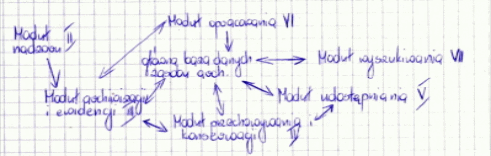 Moduł opracowania VI
Moduł II
nadzoru
główna baza danych
zasobu arch.
Moduł wyszukiwania VII
Moduł archiwizacji
i ewidencji III
Moduł udostępniania V
Moduł przechowywania
i konserwacji IV